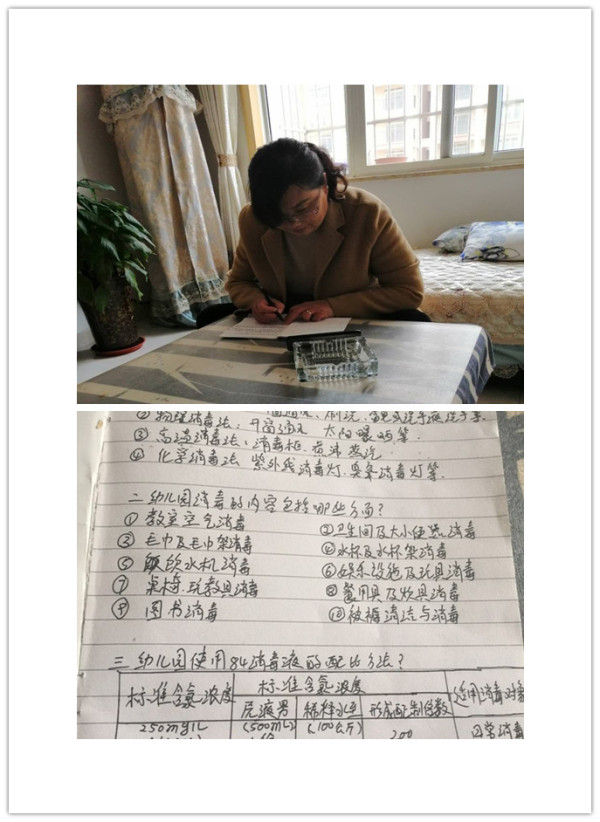 ② 物理消毒法：开窗通风、刷洗、
③ 高温消毒法：消毒柜、煮沸 蒸汽
④ 化学消毒法 紫外线消毒灯.臭氧消毒灯等.
二 幼儿园消毒的内容包括哪些方面？
① 教室空气消毒 ②卫生间及大小便器消毒
③ 毛巾及毛巾架消毒 ④水杯及水杯架消毒
⑤ 饮水机消毒 ⑥娱乐设施及玩具消毒
⑦ 桌椅.玩教具消毒 ⑧餐用具及炊具消毒
⑨ 图书消毒 ⑩被褥清洁与消毒
三 幼儿园使用84消毒液的配比方法？
标准含氯浓度 标准含氯浓度 适用消毒对象
原液量 稀释水量 形成配制倍数
250mg/L (500mL) (100公斤) 200 日常消毒